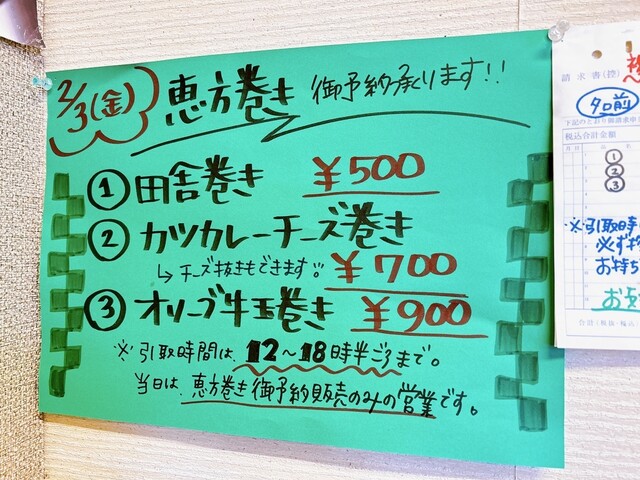 2/3(金) 恵方巻き 御予約承ります!!
① 田舎巻き ¥500
② カツカレーチーズ巻き
↳ チーズ抜きもできます。 ¥700
③ オリーブ牛玉巻き ¥900
※引取時間は、12〜18時半ごろまで。
当日は、恵方巻き御予約販売のみの営業です。
請求書(控)
夕名前
税込合計金額
①
②
③
※引取時
必ず
お持ち